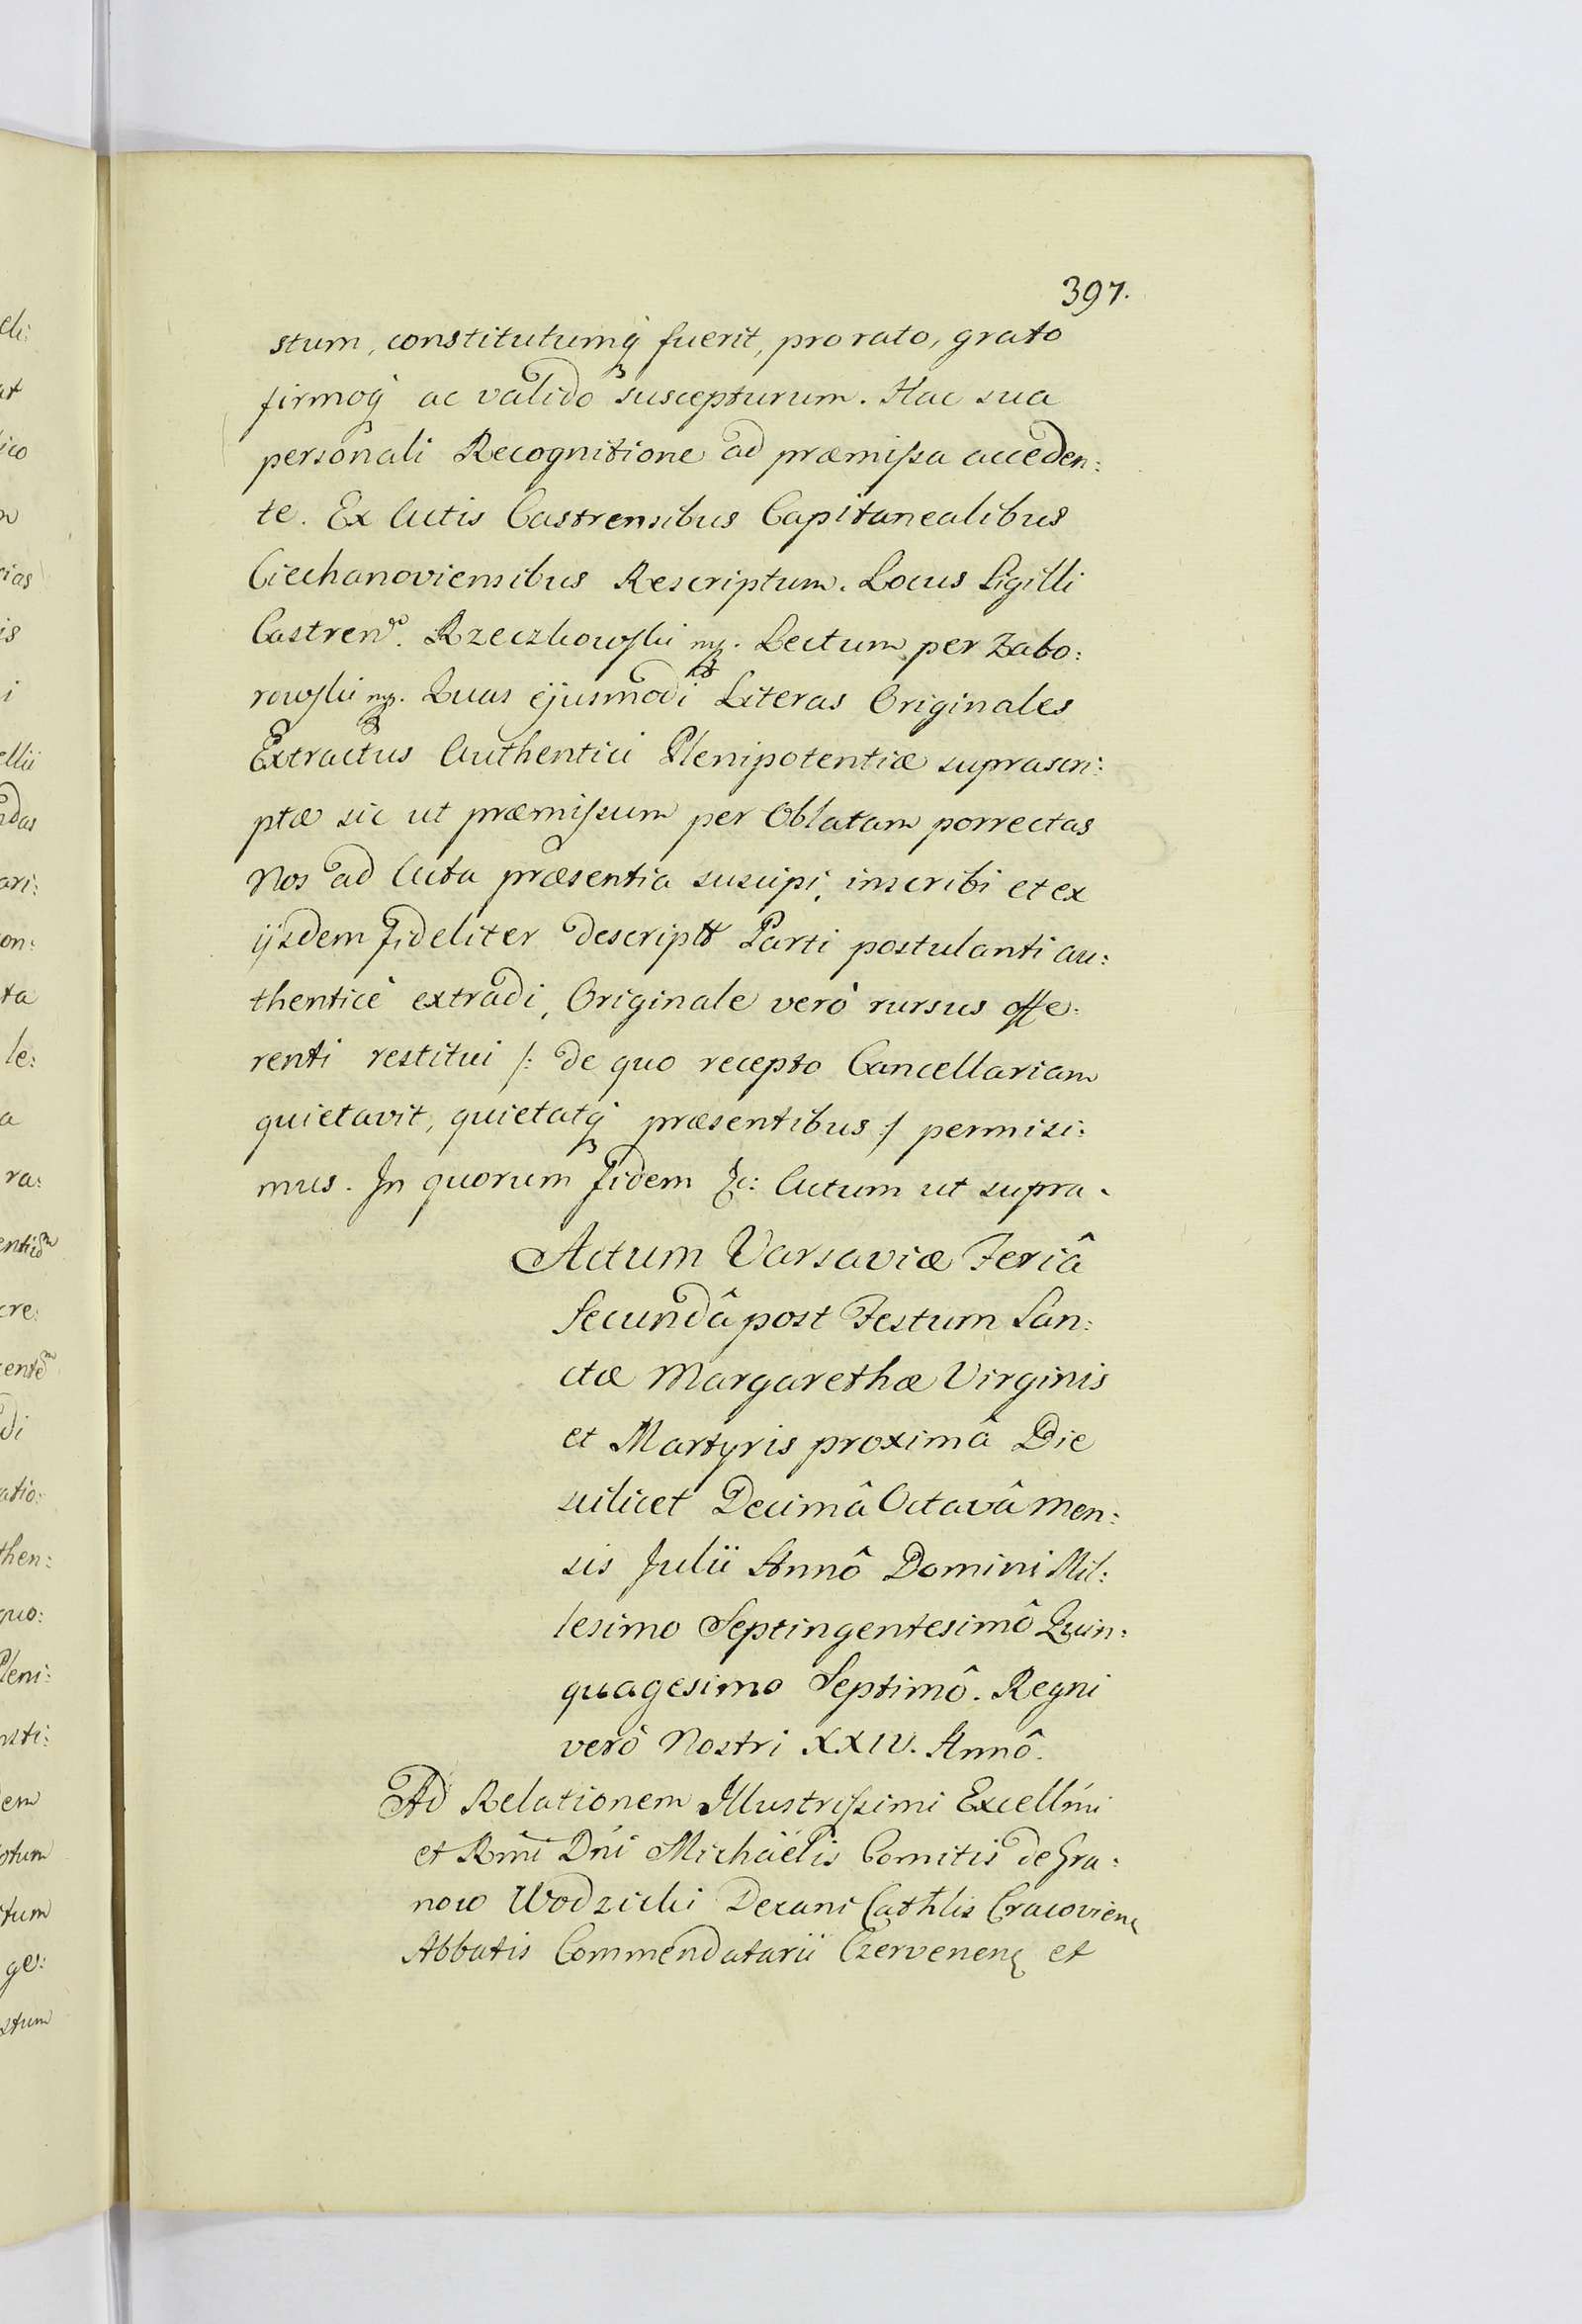 397.
stum, constitutumq́ fuerit, pro rato, grato
firmoq́ ac valido suscepturum. Hac sua
personali Recognitione ad præmissa acceden:
te. Ex Actis Castrensibus Capitanealibus
Ciechanoviensibus Rescriptum. Locus Sigilli
Castren. Rzeczkowski mp. Lectum per Zabo:
rowski mp. Quas ejusmodi Literas Originales
Extractus Authentici Plenipotentiæ suprascri:
ptæ sic ut præmissum per Oblatam porrectas
Nos ad Acta præsentia suscipi, inscribi et ex
ijsdem fideliter descriptas Parti postulanti au:
thenticè extradi, Originale verò rursus offe:
renti restitui /: de quo recepto Cancellariam
quietavit, quietatq́ præsentibus :/ permisi:
mus. In quorum fidem &c: Actum ut supra.
Actum Varsaviæ Feriâ
Secundâ post Festum San:
ctæ Margarethæ Virginis
et Martyris proximâ Die
scilicet Decimâ Octavâ Men:
sis Julii Annô Domini Mil:
lesimo Septingentesimô Quin:
quagesimo Septimô. Regni
verò Nostri XXIV. Annô.
Ad Relationem Illustrissimi Excellmi
et Rmi Dni Michaëlis Comitis de Gra:
now Wodzicki Decani Cathlis Cracovien
Abbatis Commendatarii Czervenen et